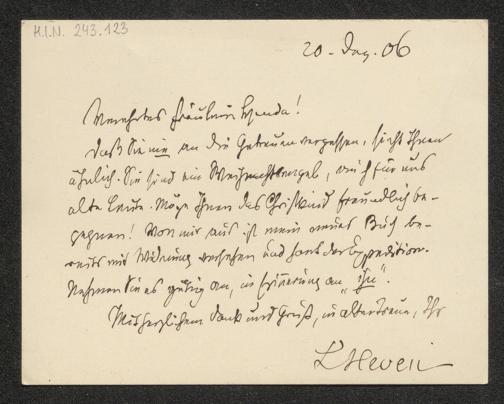 H.I.N. 243.123
20. Dez. 06
Verehrtes Fräulein Wanda!
Daß Sie nie an die Getreuen vergessen, sieht Ihnen
ähnlich. Sie sind ein Weihnachtsengel, auch für uns
alte Leute. Möge Ihnen das Christkind freundlich be-
gegnen! Von mir aus ist mein neues Buch be-
reits mit Widmung versehen und harrt der Expedition.
Nehmen Sie es gütig an, in Erinnerung an "
Mit herzlichem Dank und Gruß, in alter Treue, Ihr
L Hevesi